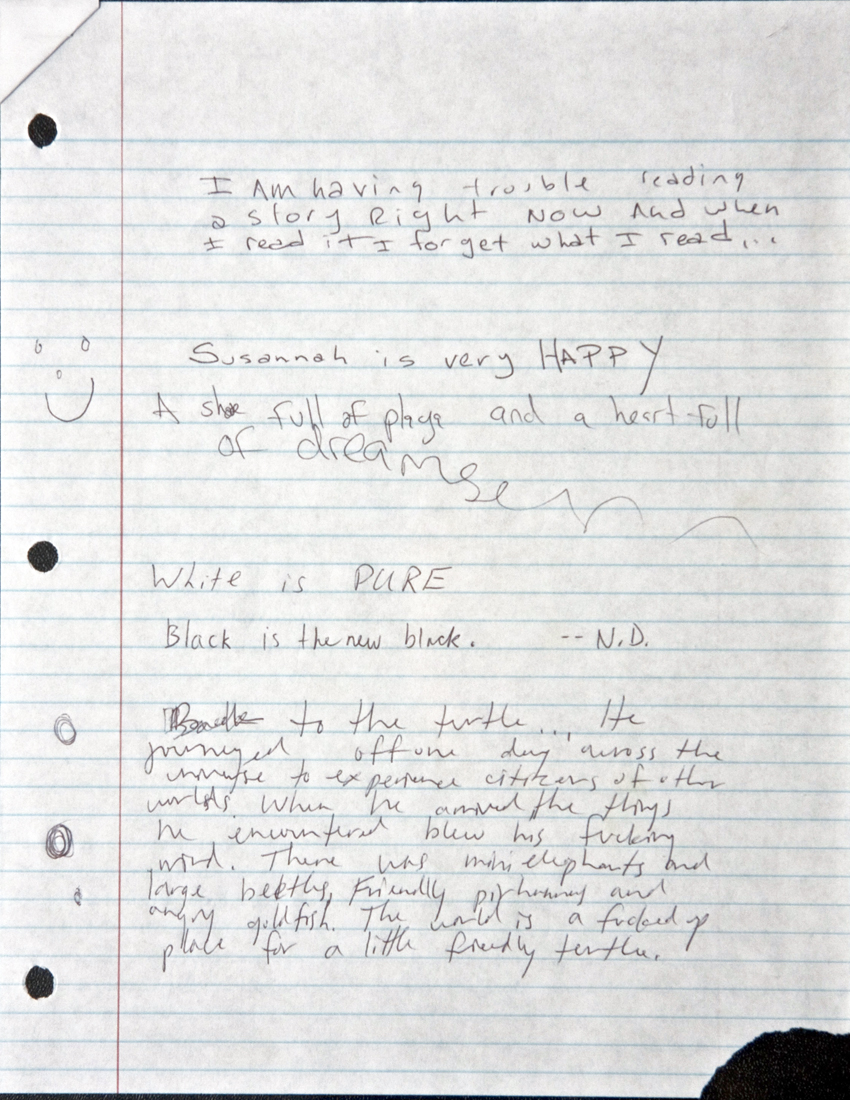 I Am having trouble reading
a story Right Now And when
I read it I forget what I read...
Susannah is very HAPPY
A shoe full of playa and a heart full
of dreams
White is PURE
Black is the new black. -- N.D.
to the turtle... He
journeyed off one day across the
universe to experience citizens of other
worlds. When he arrived, the things
he encountered blew his fucking
mind. There was mini elephants and
large beetles, Friendly and
angry goldfish. The world is a fucked up
place for a little friendly turtle.